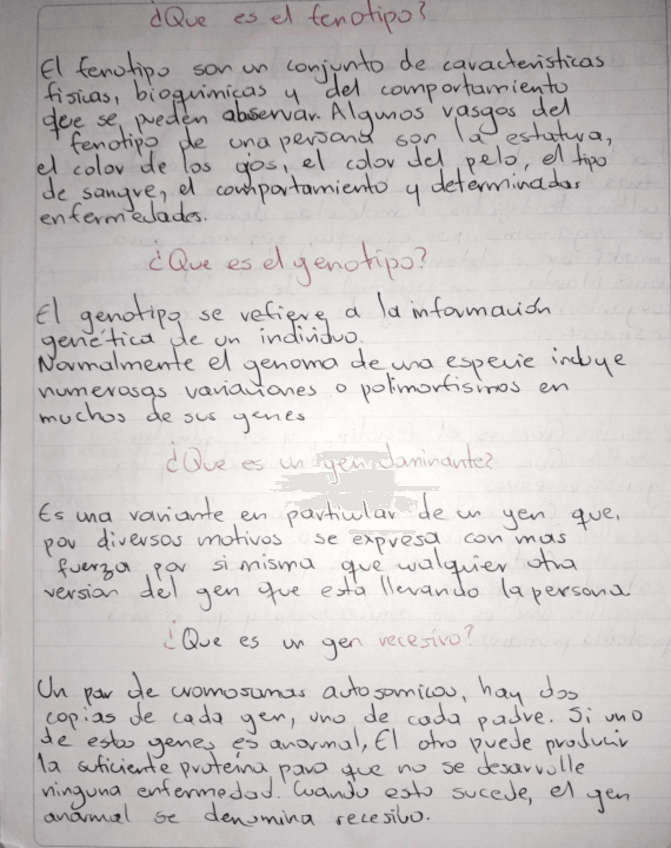 ¿Que es el fenotipo?
El fenotipo son un conjunto de caracteristicas
fisicas, bioquimicas y del comportamiento
que se pueden observar. Algunos rasgos del
fenotipo de una persona son la estatura,
el color de los ojos, el color del pelo, el tipo
de sangre, el comportamiento y determinadas
enfermedades.
¿Que es el genotipo?
El genotipo se refiere a la información
genética de un individuo.
Normalmente el genoma de una especie incluye
numerosas variaciones o polimorfismos en
muchos de sus genes
¿Que es un gen dominante?
Es una variante en particular de un gen que,
por diversos motivos se expresa con mas
fuerza por si misma que cualquier otra
version del gen que esta llevando la persona
¿Que es un gen recesivo?
Un par de cromosomas autosomicos, hay dos
copias de cada gen, uno de cada padre. Si uno
de estos genes es anormal, El otro puede producir
la suficiente proteína para que no se desarrolle
ninguna enfermedad. Cuando esto sucede, el gen
anormal se denomina recesivo.